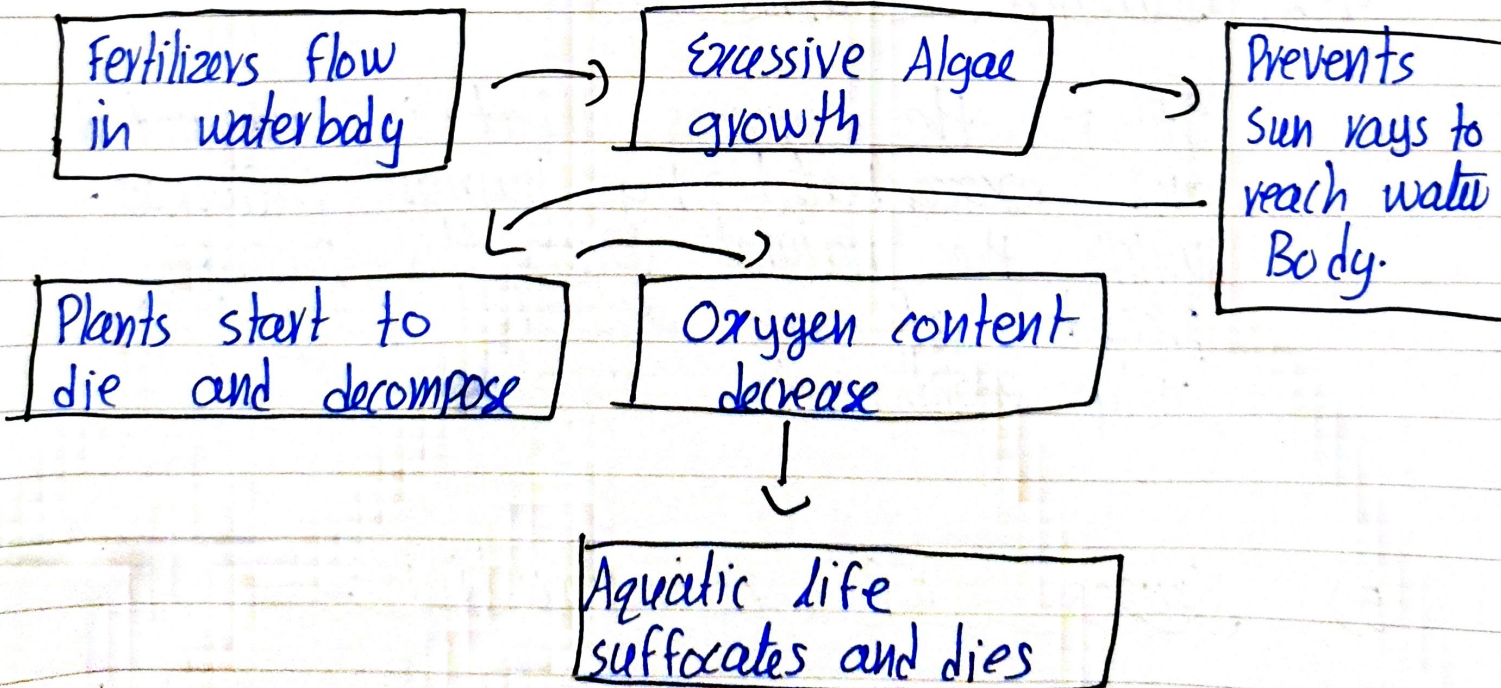 Fertilizers flow
in waterbody
Excessive Algae
growth
Prevents
Sun rays to
reach water
Body.
Plants start to
die and decompose
Oxygen content
decrease
Aquatic life
suffocates and dies